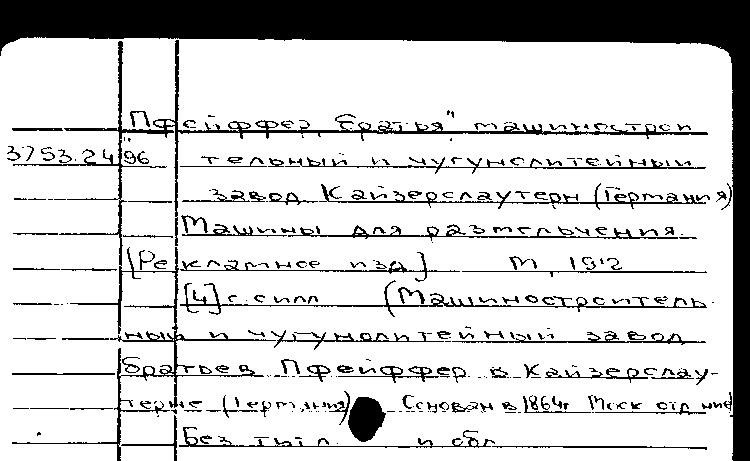 Пфейффер, братья" машинострои
3753.24/96 тельный и чугунолитейный
завод Кайзерслаутерн (Германия)
Машины для размельчения.
[Рекламное изд] М, 1912
[4] с. с илл (Машинострои­тель-
ный и чугунолитейный завод
братьев Пфейффер в Кайзерслау-
терне (Германия) Основан в 1864г Моск отд ние)
Без тит л. и обл